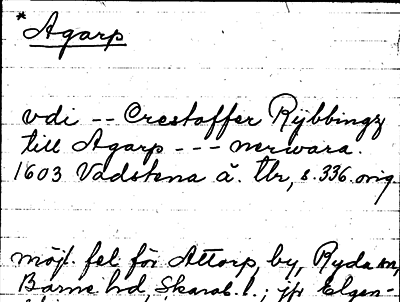 * Agarp
vdi -- Crestoffer Rÿbbingz
till Agarp --- nerwara.
1603 Vadstena ä. tbr, s. 336. orig.
möjl. fel för Attorp, by, Ryda sn,
Barne hd, Skarab. l.; jfr Elgen-